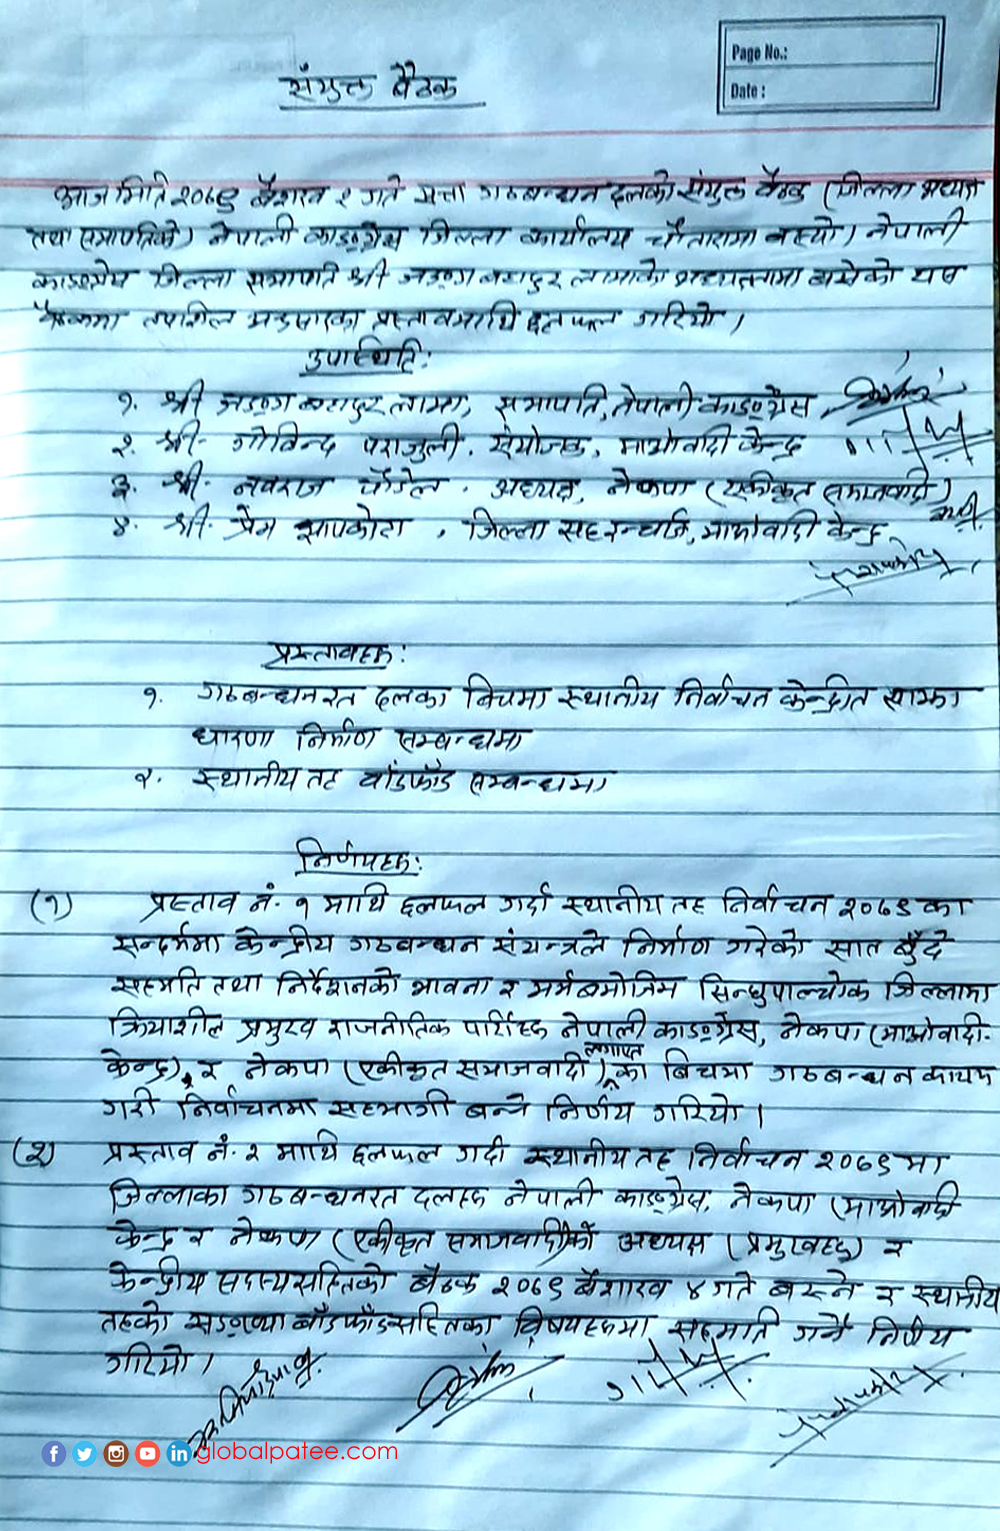 Page No.:
Date :
संयुक्त बैठक
आज मिति २०७९ बैशाख १ गते सत्ता गठबन्धन दलको संयुक्त बैठक (जिल्ला अध्यक्ष
तथा सभापतिको) नेपाली काङ्ग्रेस जिल्ला कार्यालय चौतारामा बस्यो। नेपाली
काङ्ग्रेस जिल्ला सभापति श्री जङ्ग बहादुर लामाको अध्यक्षतामा बसेको यस
बैठकमा तपासिल प्रस्तावमाथि छलफल गरियो।
उपास्थिति:
१. श्री जङ्ग बहादुर लामा, सभापति, नेपाली काङ्ग्रेस
२. श्री गोविन्द पराजुली. संयोजक, माओवादी केन्द्र
३. श्री. नवराज पौडेल. अध्यक्ष, नेकपा (एकीकृत समाजवादी)
४. श्री. प्रेम सापकोटा, जिल्ला सहइन्चार्ज, माओवादी केन्द्र
प्रस्तावहरू:
१. गठबन्धनरत दलका बिचमा स्थानीय निर्वाचन केन्द्रीत साझा
धारणा निर्माण सम्बन्धमा
२. स्थानीय तह बाँडफाँड सम्बन्धमा
निर्णयहरू:
(१) प्रस्ताव नं. १ माथि छलफल गर्दा स्थानीय तह निर्वाचन २०७९ का
सन्दर्भमा केन्द्रीय गठबन्धन संयन्त्रले निर्माण गरेको सात बुँदे
सहमति तथा निर्देशनको भावना र मर्मबमोजिम सिन्धुपाल्चोक जिल्लामा
क्रियाशील प्रमुख राजनीतिक पार्टीहरू नेपाली काङ्ग्रेस, नेकपा (माओवादी-
केन्द्र), र नेकपा (एकीकृत समाजवादी) लगायत का बिचमा गठबन्धन कायम
गरी निर्वाचनमा सहभागी बन्ने निर्णय गरियो।
(२) प्रस्ताव नं. २ माथि छलफल गर्दा स्थानीय तह निर्वाचन २०७९ मा
जिल्लाका गठबन्धनरत दलहरू नेपाली काङ्ग्रेस, नेकपा (माओवादी
केन्द्र र नेकपा (एकीकृत समाजवादी)को अध्यक्ष (प्रमुखहरु) र
केन्द्रीय सदस्यसहितको बैठक २०७९ बैशाख ४ गते बस्ने र स्थानीय
तहको सङ्ख्या बाँडफाँडसहितका विषयहरूमा सहमति गर्ने निर्णय
गरियो।
globalpatee.com